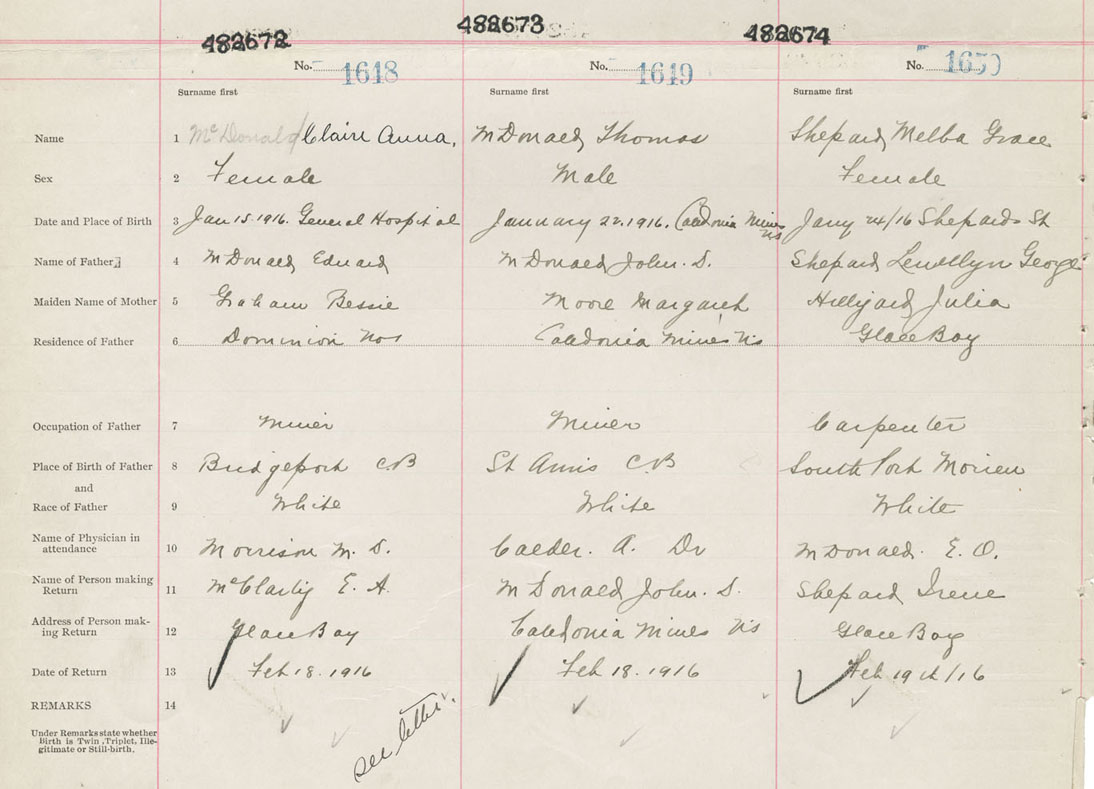 482672 482673 482674
No. 1618 No. 1619 No. 1650
Surname first Surname first Surname first
Name 1 McDonald/Claire Anna, McDonald, Thomas Shepard, Melba Grace
Sex 2 Female Male Female
Date and Place of Birth 3 Jan 15.1916. General Hospital January 22.1916. Caledonia Mines NS Jany 24/16 Shepards St
Name of Father 4 McDonald Edward McDonald John. D. Shepard George
Maiden Name of Mother 5 Graham Bessie Moore Margaret Hillyard Julia
Residence of Father 6 Dominion No1 Caledonia Mines NS Glace Bay
Occupation of Father 7 Miner Miner Carpenter
Place of Birth of Father 8 Bridgeport CB St Anns CB South Port Morien
and
Race of Father 9 White White White
Name of Physician in
attendance 10 Morrison M. D. Calder. A. Dr McDonald. E. O.
Name of Person making
Return 11 E. A. McDonald John. D. Shepard Irene
Address of Person mak-
ing Return 12 Glace Bay Caledonia Mines NS Glace Bay
Date of Return 13 Feb 18.1916 Feb 18.1916 Feb 19th/16
REMARKS 14
see letter.
Under Remarks state whether
Birth is Twin, Triplet, Ille-
gitimate or Still-birth.